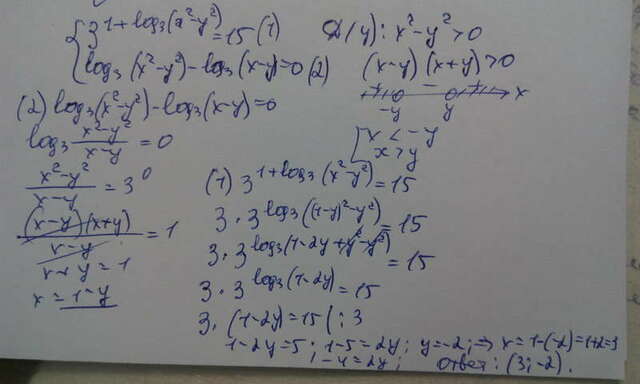 { 3^{1+log₃(x²-y²)} = 15 (1)
{ log₃(x²-y²)-log₃(x-y)=0 (2)
D(y): x²-y²>0
(x-y)(x+y)>0
+ - + x
-y y
[ x < -y
[ x > y
(2) log₃(x²-y²)-log₃(x-y)=0
log₃ (x²-y²)/(x-y) = 0
(x²-y²)/(x-y) = 3⁰
(x-y)(x+y)/(x-y) = 1
x+y=1
x = 1-y
(1) 3^{1+log₃(x²-y²)} = 15
3·3^{log₃((1-y)²-y²)} = 15
3·3^{log₃(1-2y+y²-y²)} = 15
3·3^{log₃(1-2y)} = 15
3·(1-2y)=15 |:3
1-2y=5; 1-5=2y; y=-2; ⇒ x=1-(-2)=1+2=3
; -4=2y; ответ: (3;-2).